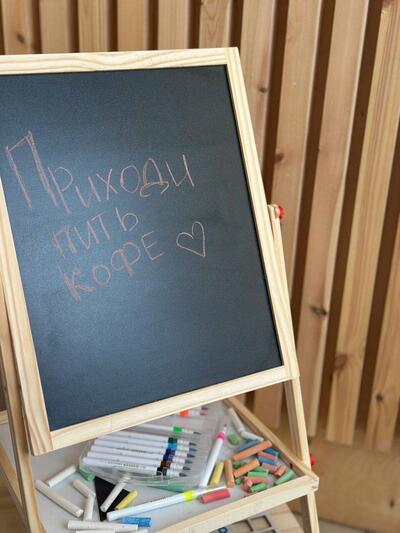 Приходи
пить
кофе ♡